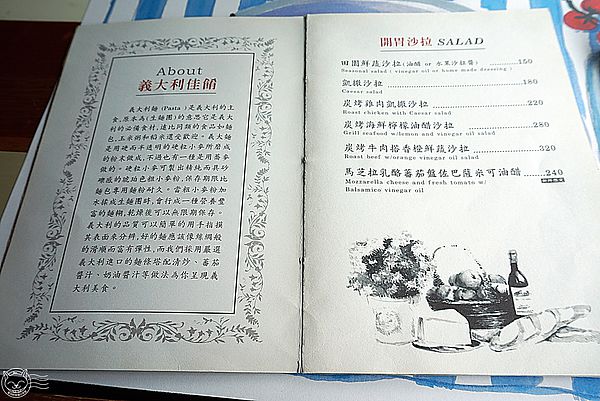 About
義大利佳餚
義大利麵 (Pasta) 是義大利的主
食,原本為(生麵團)的意思它是義大
利的必備食材,遠比同類的食品如麵
包,玉米粥和稻米還受歡迎。義大麵
是用硬而不透明的硬拉小麥所磨成
的粉末做成,不過也有一種是用蕎麥
做的。硬粒小麥可製出精純而具砂
礫感的琥珀色粗小麥粉,保存期限比
麵包專用麵粉耐久。當粗小麥粉加
水揉成生麵團時,會行成一種營養豐
富的麵糊,乾燥後可以無限期保存。
義大利的品質可以簡單的用手拮摸
其表面來分辨,好的麵應該像絲綢般
的滑順而富有彈性,而我們採用嚴選
義大利進口的麵條搭配清炒、蕃茄
醬汁、奶油醬汁等做法為你呈現義
大利美食。
開胃沙拉 SALAD
田園鮮蔬沙拉(油醋 or 水果沙拉醬) 150
Seasonal salad ( vinegar oil or home made dressing )
凱撒沙拉 180
Caesar salad
炭烤雞肉凱撒沙拉 220
Roast chicken with Caesar salad
炭烤海鮮檸檬油醋沙拉 280
Grill seafood w/lemon and vinegar oil salad
炭烤牛肉搭香橙鮮蔬沙拉 320
Roast beef w/orange vinegar oil salad
馬芝拉乳酪蕃茄盤佐巴薩米可油醋 240
Mozzarella cheese and fresh tomato w/
Balsamico vinegar oil